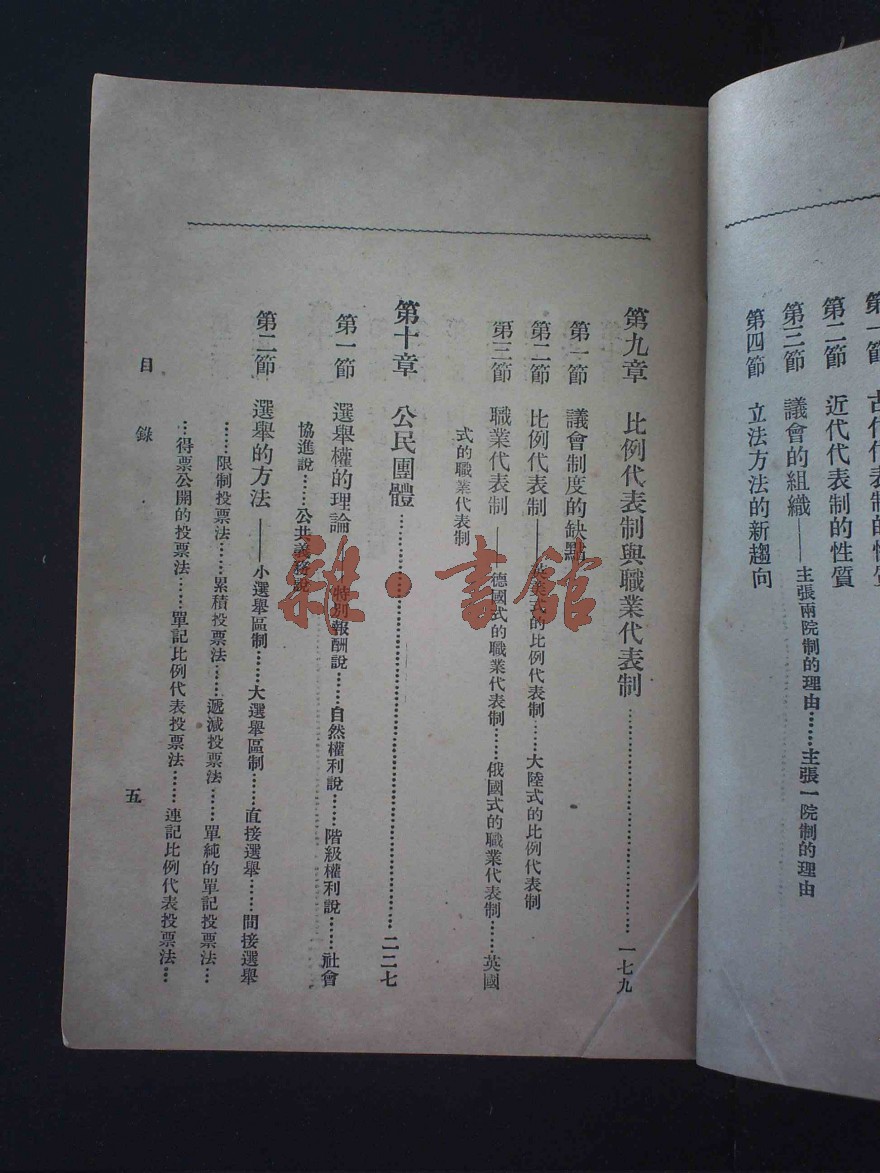 第二節　近代代表制的性質
第三節　議會的組織——主張兩院制的理由……主張一院制的理由
第四節　立法方法的新趨向
第九章　比例代表制與職業代表制……一七九
第一節　議會制度的缺點
第二節　比例代表制——英美式的比例代表制……大陸式的比例代表制
第三節　職業代表制——德國式的職業代表制……俄國式的職業代表制……英國
式的職業代表制
第十章　公民團體……二二七
第一節　選舉權的理論——特別報酬說……自然權利說……階級權利說……社會
協進說……公共義務說
第二節　選舉的方法——小選舉區制……大選舉區制……直接選舉……間接選舉
……限制投票法……累積投票法……遞減投票法……單純的單記投票法…
…得票公開的投票法……單記比例代表投票法……連記比例代表投票法…
目錄
五
雜·書館